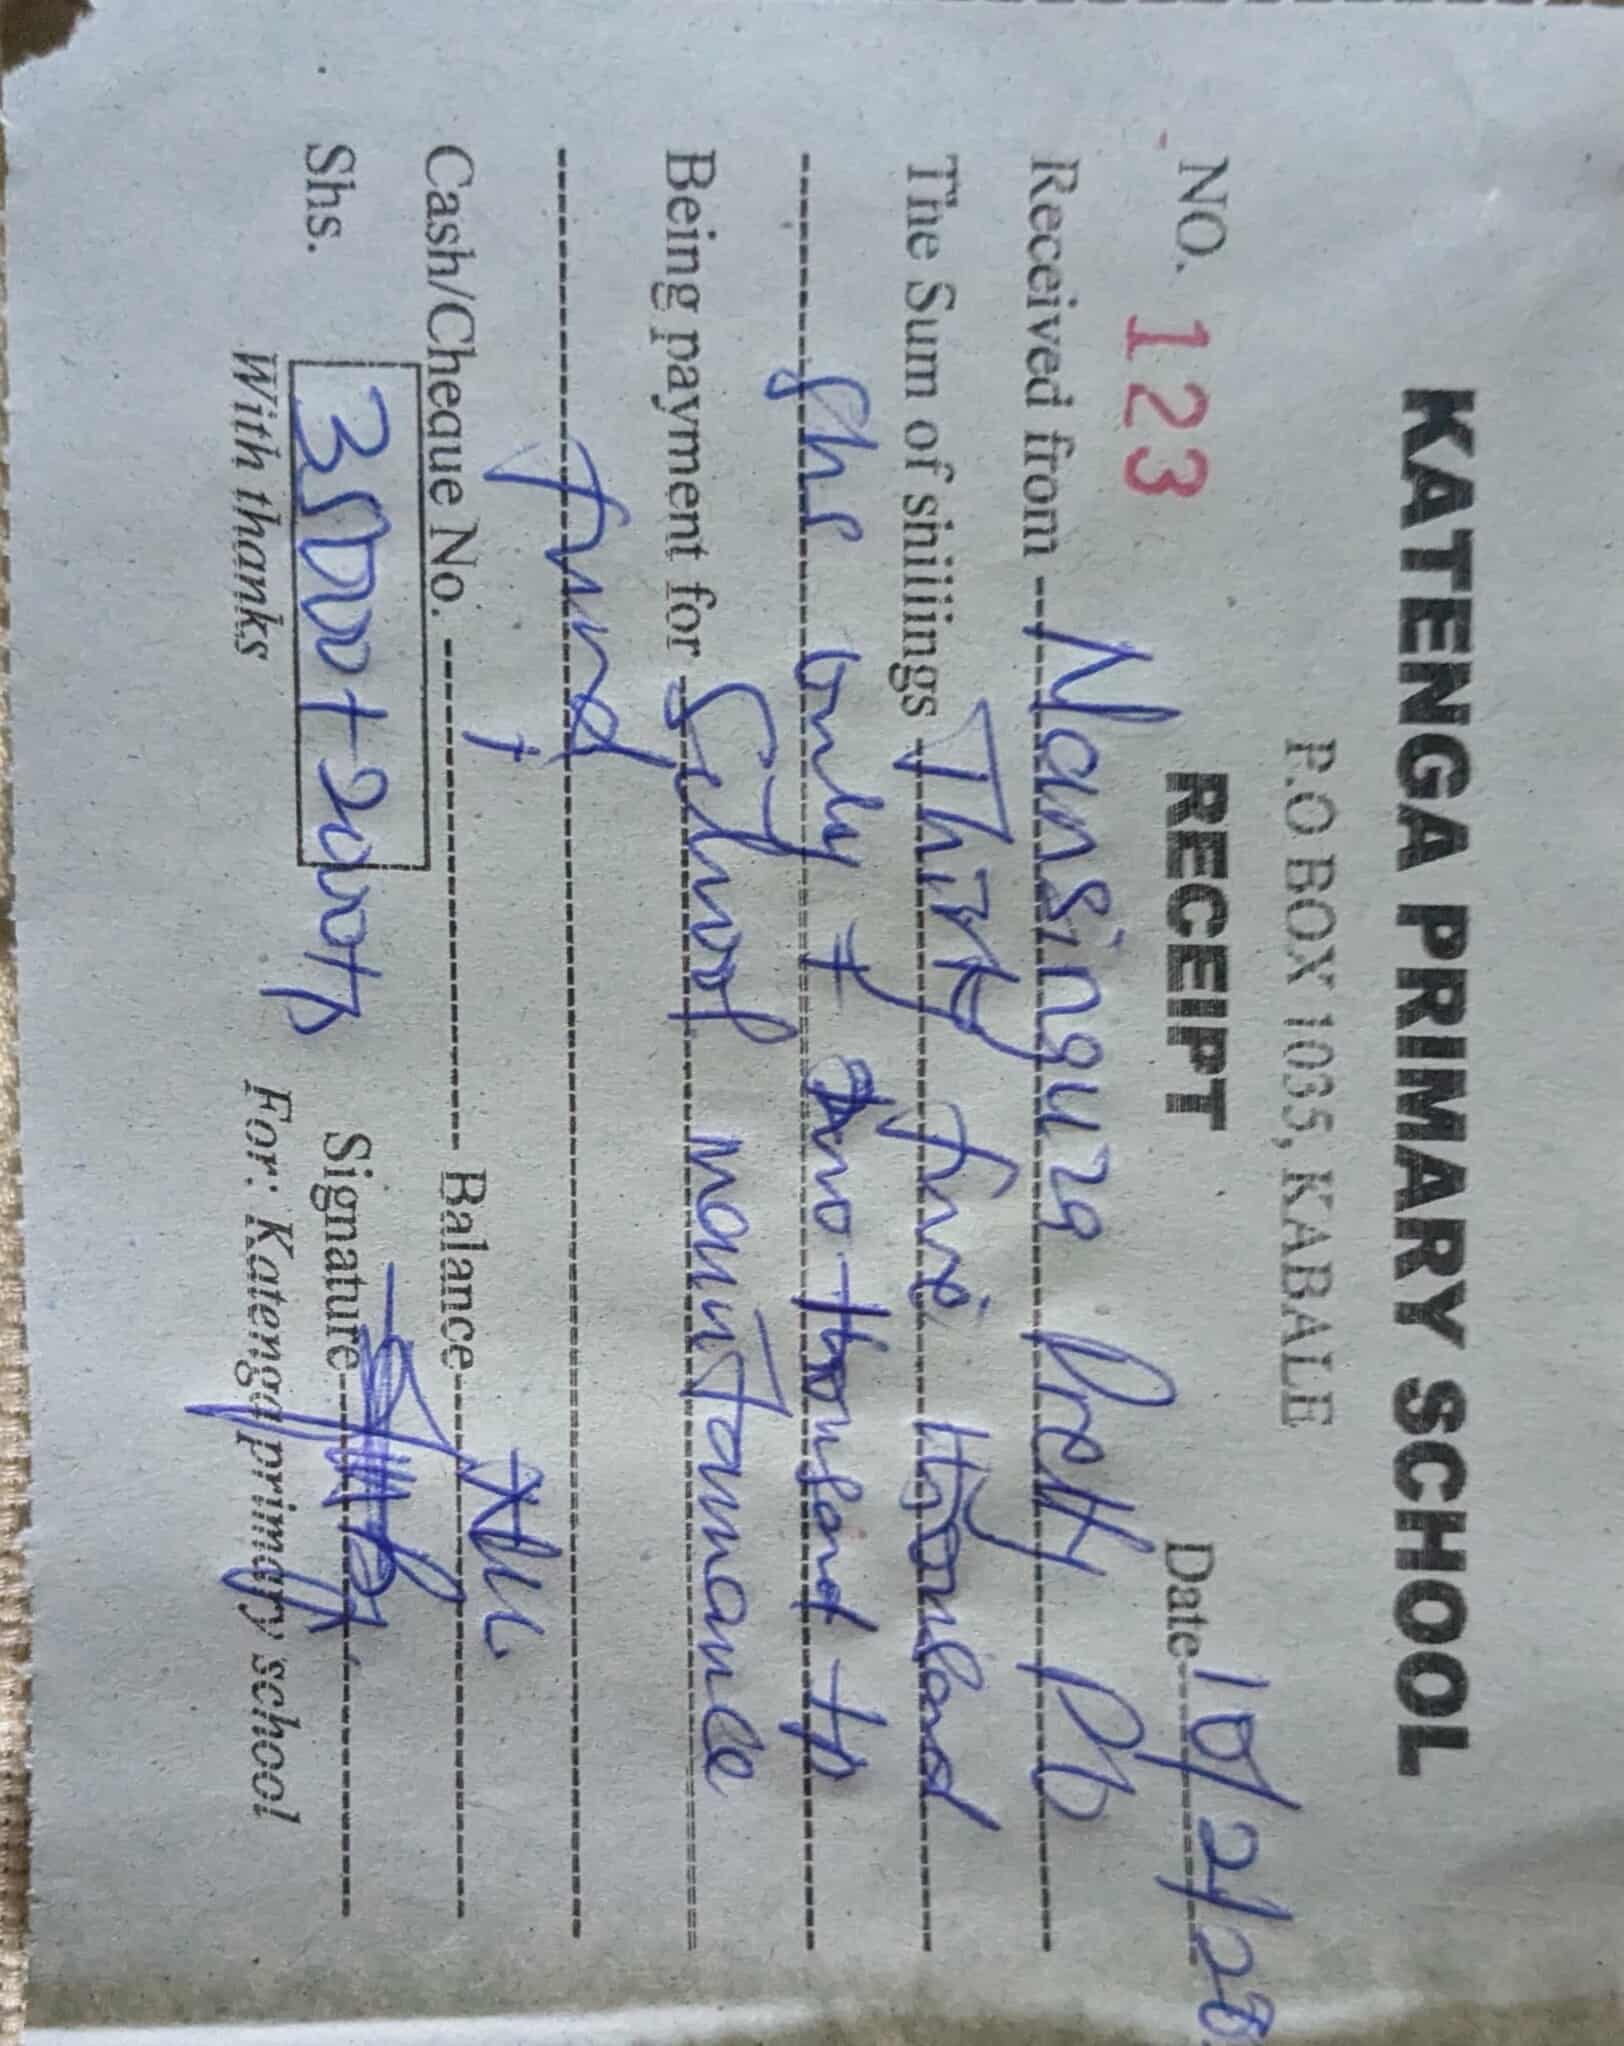 KATENGA PRIMARY SCHOOL
P.O BOX 1035, KABALE
RECEIPT
NO. 123 Date 10/2/20
Received from Nansinguza P.b
The Sum of shillings Thirty five thousand
shs only + Two thousand tp
Being payment for School maintanance
fund
Cash/Cheque No. Balance Nil.
Shs. 35000+2000tp Signature
With thanks For: Katenga primary school